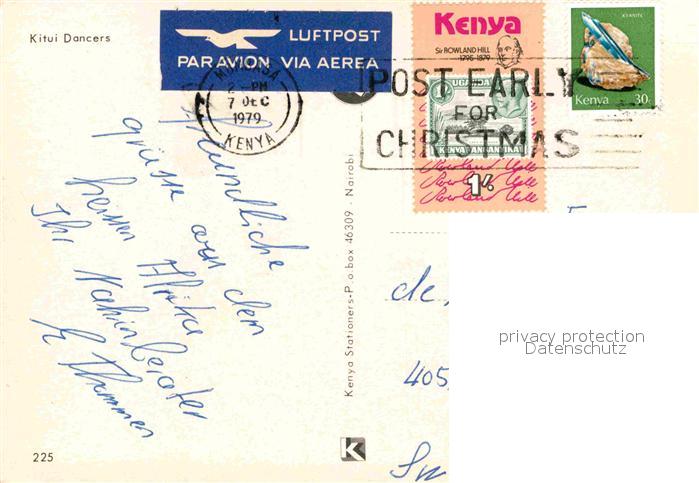 Kitui Dancers
LUFTPOST
PAR AVION VIA AEREA
MOMBASA
2 - PM
7 DEC
1979
KENYA
POST EARLY
FOR
CHRISTMAS
Kenya
Sir ROWLAND HILL
1795-1879
UGANDA
KENYA TANGANYIKA
1/-
Rowland Hill
Rowland Hill
Rowland Hill
KYANITE
Kenya 30c
Freundliche
grüsse aus dem
heissen Afrika
Ihr Nahinberater
Kenya Stationers-P.o.box 46309 · Nairobi
de,
405
privacy protection
Datenschutz
K
225